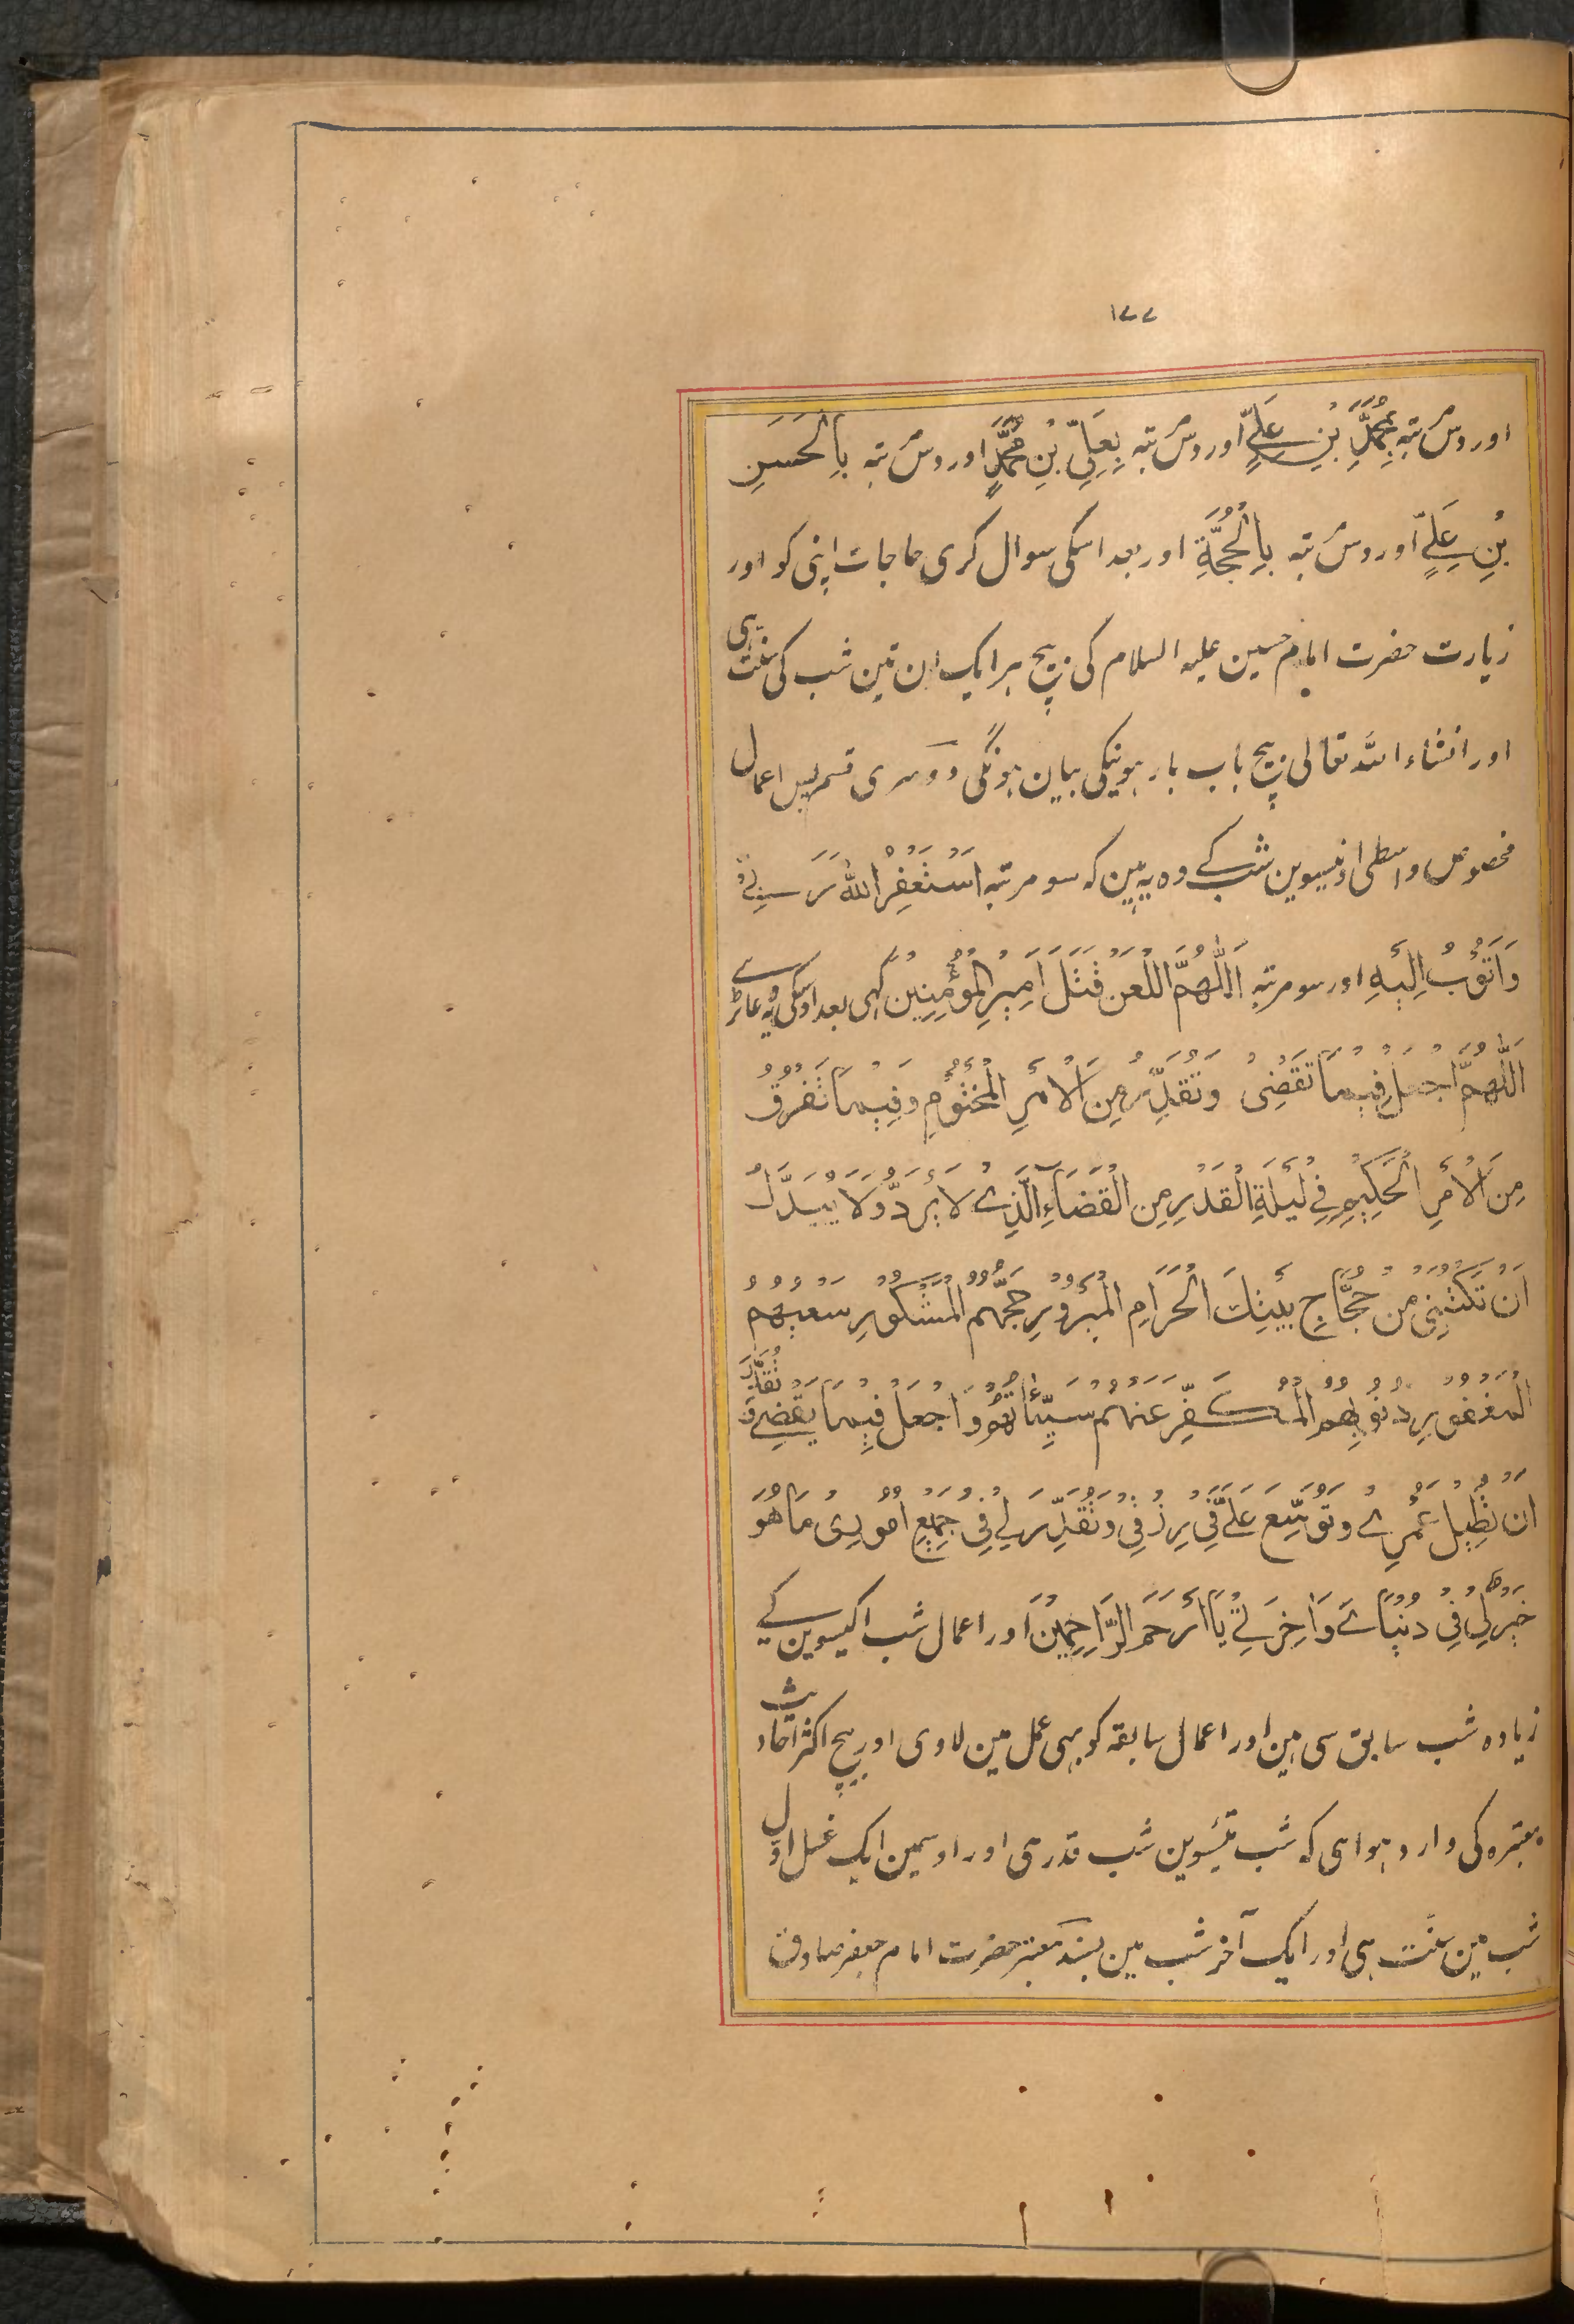 ۱۷۷
اور دس مرتبہ بِمُحَمَّدِ بْنِ عَلِيٍّ اور دس مرتبہ بِعَلِيِّ بْنِ مُحَمَّدٍ اور دس مرتبہ بِالْحَسَنِ
بْنِ عَلِيٍّ اور دس مرتبہ بِالْحُجَّةِ اور بعد اسکی سوال کری حاجات اپنی کو اور
زیارت حضرت امام حسین علیہ السلام کی بیچ ہر ایک ان تین شب کی سنّت ہی
اور انشاء اللہ تعالی بیچ باب بارہوینکی بیان ہونگی دوسری قسم پس اعمال
مخصوص واسطی اونیسوین شب کے وہ یہ ہین کہ سو مرتبہ اَسْتَغْفِرُ اللّٰهَ رَبِّيْ
وَاَتُوْبُ اِلَيْهِ اور سو مرتبہ اَللّٰهُمَّ اللْعَنْ قَتَلَ اَمِيْرِ الْمُؤْمِنِيْنَ کہی بعد اوسکی یہ دعا پڑہے
اَللّٰهُمَّ اجْعَلْ فِيْمَا تَقْضِيْ وَتُقَدِّرُ مِنَ الْاَمْرِ الْمَحْتُوْمِ وَفِيْمَا تَفْرُقُ
مِنَ الْاَمْرِ الْحَكِيْمِ فِيْ لَيْلَةِ الْقَدْرِ مِنَ الْقَضَآءِ الَّذِيْ لَا يُرَدُّ وَلَا يُبَدَّلُ
اَنْ تَكْتُبَنِيْ مِنْ حُجَّاجِ بَيْتِكَ الْحَرَامِ الْمَبْرُوْرِ حَجُّهُمْ الْمَشْكُوْرِ سَعْيُهُمْ
الْمَغْفُوْرِ ذُنُوْبُهُمْ الْمُكَفَّرِ عَنْهُمْ سَيِّئَاتُهُمْ وَاجْعَلْ فِيْمَا تَقْضِيْ وَتُقَدِّرُ
اَنْ تُطِيْلَ عُمْرِيْ وَتُوَسِّعَ عَلَيَّ فِيْ رِزْقِيْ وَتُقَدِّرَ لِيْ فِيْ جَمِيْعِ اُمُوْرِيْ مَا هُوَ
خَيْرٌ لِيْ فِيْ دُنْيَايَ وَاٰخِرَتِيْ يَا اَرْحَمَ الرَّاحِمِيْنَ اور اعمال شب اکیسوین کے
زیادہ شب سابق سی ہین اور اعمال سابقہ کو بہی عمل مین لاوی اور بیچ اکثر احادیث
معتبرہ کی وارد ہوا ہی کہ شب تیئسوین شب قدر ہی اور اوسمین ایک غسل اوّل
شب مین سنّت ہی اور ایک آخر شب مین بسند معتبر حضرت امام جعفر صادق